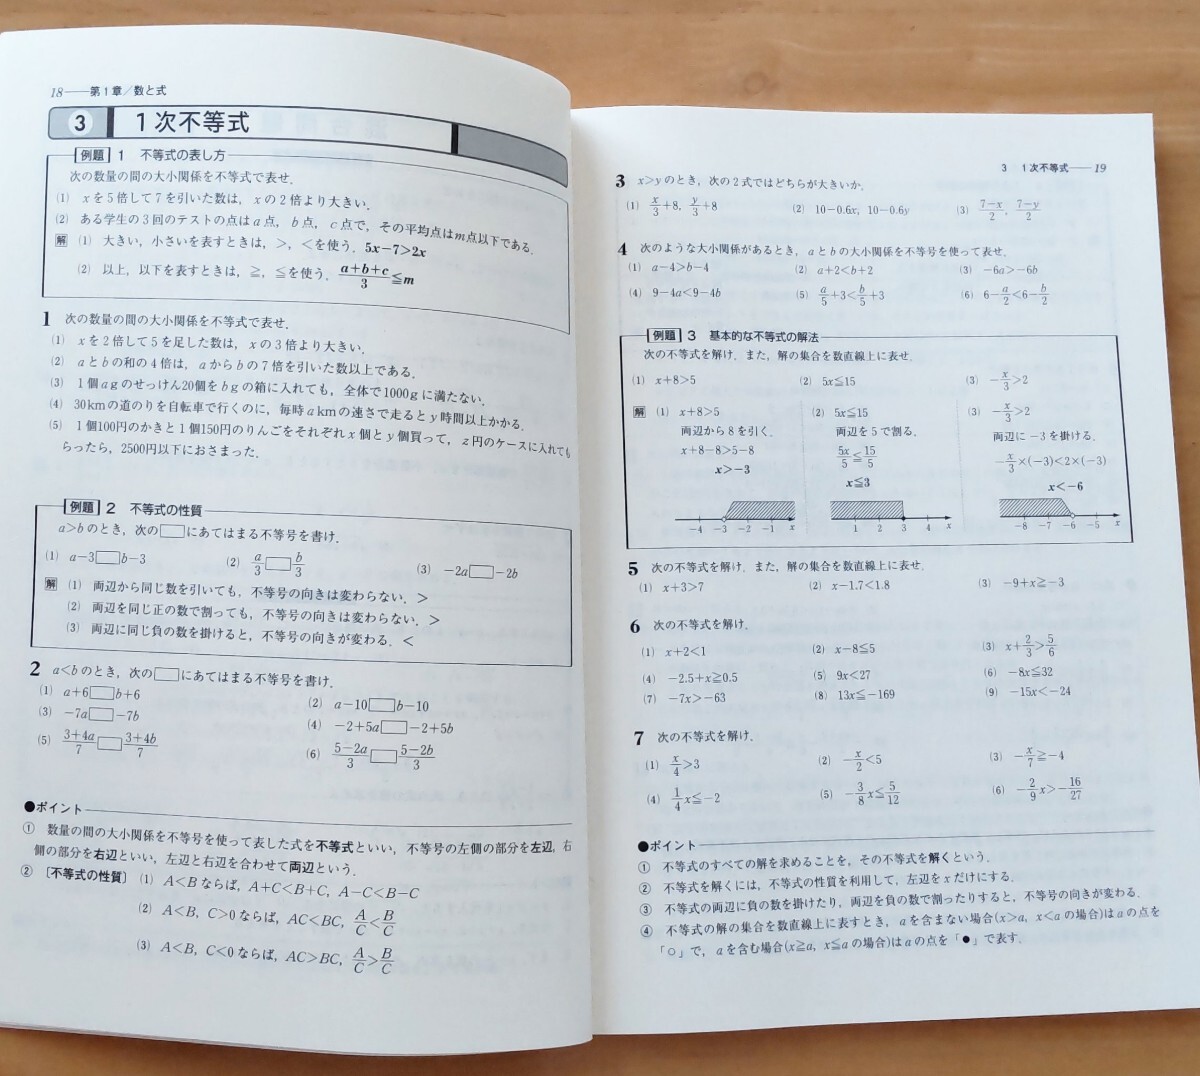 18——第1章／数と式
3 1次不等式
例題 1 不等式の表し方
次の数量の間の大小関係を不等式で表せ．
(1) xを5倍して7を引いた数は，xの2倍より大きい．
(2) ある学生の3回のテストの点はa点，b点，c点で，その平均点はm点以下である．
解 (1) 大きい，小さいを表すときは，>，<を使う．5x−7>2x
(2) 以上，以下を表すときは，≧，≦を使う．(a+b+c)/3≦m
1 次の数量の間の大小関係を不等式で表せ．
(1) xを2倍して5を足した数は，xの3倍より大きい．
(2) aとbの和の4倍は，aからbの7倍を引いた数以上である．
(3) 1個agのせっけん20個をbgの箱に入れても，全体で1000gに満たない．
(4) 30kmの道のりを自転車で行くのに，毎時akmの速さで走るとy時間以上かかる．
(5) 1個100円のかきと1個150円のりんごをそれぞれx個とy個買って，z円のケースに入れても
らったら，2500円以下におさまった．
例題 2 不等式の性質
a>bのとき，次の□にあてはまる不等号を書け．
(1) a−3□b−3 (2) a/3□b/3 (3) −2a□−2b
解 (1) 両辺から同じ数を引いても，不等号の向きは変わらない．>
(2) 両辺を同じ正の数で割っても，不等号の向きは変わらない．>
(3) 両辺に同じ負の数を掛けると，不等号の向きが変わる．<
2 a<bのとき，次の□にあてはまる不等号を書け．
(1) a+6□b+6 (2) a−10□b−10
(3) −7a□−7b (4) −2+5a□−2+5b
(5) (3+4a)/7□(3+4b)/7 (6) (5−2a)/3□(5−2b)/3
●ポイント
① 数量の間の大小関係を不等号を使って表した式を不等式といい，不等号の左側の部分を左辺，右
側の部分を右辺といい，左辺と右辺を合わせて両辺という．
② ［不等式の性質］ (1) A<Bならば，A+C<B+C，A−C<B−C
(2) A<B，C>0ならば，AC<BC，A/C<B/C
(3) A<B，C<0ならば，AC>BC，A/C>B/C
3 1次不等式——19
3 x>yのとき，次の2式ではどちらが大きいか．
(1) x/3+8，y/3+8 (2) 10−0.6x，10−0.6y (3) (7−x)/2，(7−y)/2
4 次のような大小関係があるとき，aとbの大小関係を不等号を使って表せ．
(1) a−4>b−4 (2) a+2<b+2 (3) −6a>−6b
(4) 9−4a<9−4b (5) a/5+3<b/5+3 (6) 6−a/2<6−b/2
例題 3 基本的な不等式の解法
次の不等式を解け．また，解の集合を数直線上に表せ．
(1) x+8>5 (2) 5x≦15 (3) −x/3>2
解 (1) x+8>5 (2) 5x≦15 (3) −x/3>2
両辺から8を引く． 両辺を5で割る． 両辺に−3を掛ける．
x+8−8>5−8 5x/5≦15/5 −x/3×(−3)<2×(−3)
x>−3 x≦3 x<−6
−4 −3 −2 −1 x 1 2 3 4 x −8 −7 −6 −5 x
5 次の不等式を解け．また，解の集合を数直線上に表せ．
(1) x+3>7 (2) x−1.7<1.8 (3) −9+x≧−3
6 次の不等式を解け．
(1) x+2<1 (2) x−8≦5 (3) x+2/3>5/6
(4) −2.5+x≧0.5 (5) 9x<27 (6) −8x≦32
(7) −7x>−63 (8) 13x≦−169 (9) −15x<−24
7 次の不等式を解け．
(1) x/4>3 (2) −x/2<5 (3) −x/7≧−4
(4) 1/4x≦−2 (5) −3/8x≦5/12 (6) −2/9x>−16/27
●ポイント
① 不等式のすべての解を求めることを，その不等式を解くという．
② 不等式を解くには，不等式の性質を利用して，左辺をxだけにする．
③ 不等式の両辺に負の数を掛けたり，両辺を負の数で割ったりすると，不等号の向きが変わる．
④ 不等式の解の集合を数直線上に表すとき，aを含まない場合(x>a，x<aの場合)はaの点を
「○」で，aを含む場合(x≧a，x≦aの場合)はaの点を「●」で表す．